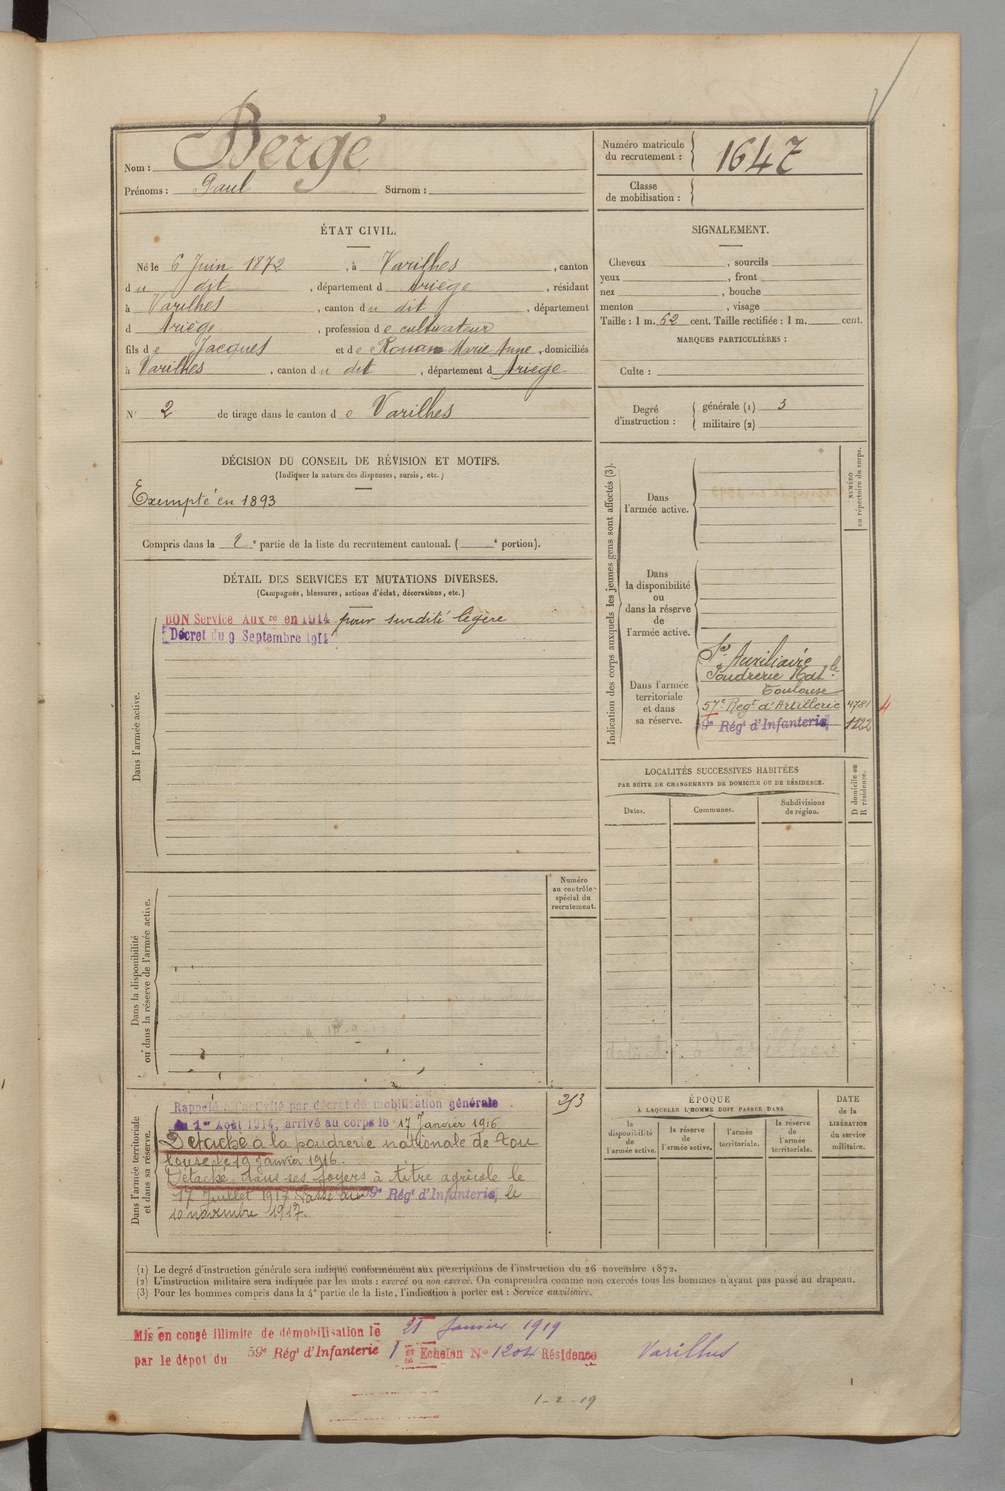 Nom : Bergé
Prénoms : Paul Surnom :
Numéro matricule du recrutement : 1647
Classe de mobilisation :
ÉTAT CIVIL.
Né le 6 Juin 1872, à Varilhes, canton
du dit, département d Ariège, résidant
à Varilhes, canton du dit, département
d Ariège, profession de cultivateur
fils de Jacques et de Rouan Marie Anne, domiciliés
à Varilhes, canton du dit, département d Ariège
N° 2 de tirage dans le canton de Varilhes
SIGNALEMENT.
Cheveux , sourcils
yeux , front
nez , bouche
menton , visage
Taille : 1 m. 62 cent. Taille rectifiée : 1 m. cent.
MARQUES PARTICULIÈRES :
Culte :
Degré d'instruction : générale (1) 3
militaire (2)
DÉCISION DU CONSEIL DE RÉVISION ET MOTIFS.
(Indiquer la nature des dispenses, sursis, etc.)
Exempté en 1893
Compris dans la 2e partie de la liste du recrutement cantonal. ( e portion).
DÉTAIL DES SERVICES ET MUTATIONS DIVERSES.
(Campagnes, blessures, actions d'éclat, décorations, etc.)
Dans l'armée active.
BON Service Auxre en 1914 pour surdité légère
Décret du 9 Septembre 1914
Indication des corps auxquels les jeunes gens sont affectés (3).
NUMÉRO au répertoire du corps.
Dans l'armée active.
Dans la disponibilité ou dans la réserve de l'armée active.
Dans l'armée territoriale et dans sa réserve.
Sce Auxiliaire
Poudrerie Natle
Toulouse
57e Régt d'Artillerie 4781 4
59e Régt d'Infanterie 1122
LOCALITÉS SUCCESSIVES HABITÉES
PAR SUITE DE CHANGEMENTS DE DOMICILE OU DE RÉSIDENCE.
Dates. Communes. Subdivisions de région. D domicile ou R résidence.
Dans la disponibilité ou dans la réserve de l'armée active.
Numéro au contrôle spécial du recrutement.
Dans l'armée territoriale et dans sa réserve.
Rappelé à l'activité par décret de mobilisation générale 253
du 1er Août 1914, arrivé au corps le 17 Janvier 1916
Détaché à la poudrerie nationale de Tou
louse le 19 Janvier 1916.
Détaché dans ses foyers à titre agricole le
17 Juillet 1917 Passé au 59e Régt d'Infanterie, le
10 novembre 1917.
ÉPOQUE
À LAQUELLE L'HOMME DOIT PASSER DANS
la disponibilité de l'armée active. la réserve de l'armée active. l'armée territoriale. la réserve de l'armée territoriale.
DATE de la LIBÉRATION du service militaire.
(1) Le degré d'instruction générale sera indiqué conformément aux prescriptions de l'instruction du 26 novembre 1872.
(2) L'instruction militaire sera indiquée par les mots : exercé ou non exercé. On comprendra comme non exercés tous les hommes n'ayant pas passé au drapeau.
(3) Pour les hommes compris dans la 4e partie de la liste, l'indication à porter est : Service auxiliaire.
Mis en congé illimité de démobilisation le 21 Janvier 1919
par le dépot du 59e Régt d'Infanterie 1er Echelon No 1204 Résidence Varilhes
1-2-19